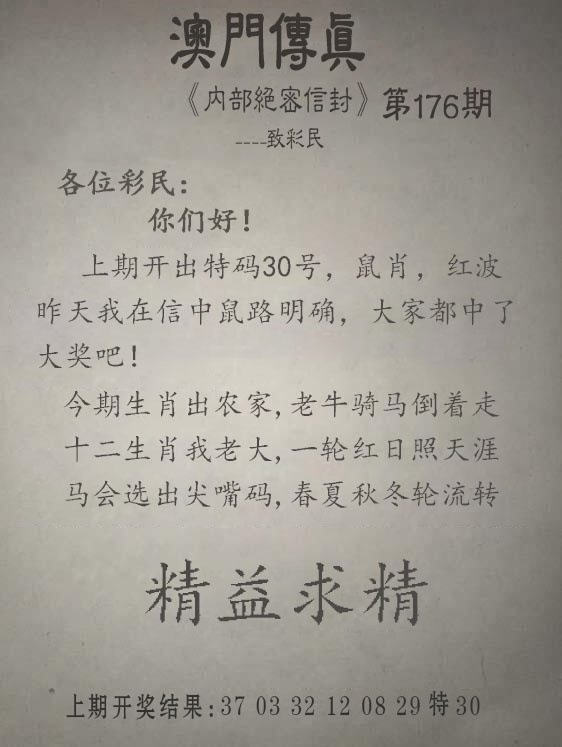 澳門傳真
《内部絕密信封》第176期
----致彩民
各位彩民：
你们好！
上期开出特码30号，鼠肖，红波
昨天我在信中鼠路明确，大家都中了
大奖吧！
今期生肖出农家,老牛骑马倒着走
十二生肖我老大,一轮红日照天涯
马会选出尖嘴码,春夏秋冬轮流转
精益求精
上期开奖结果:37 03 32 12 08 29 特30